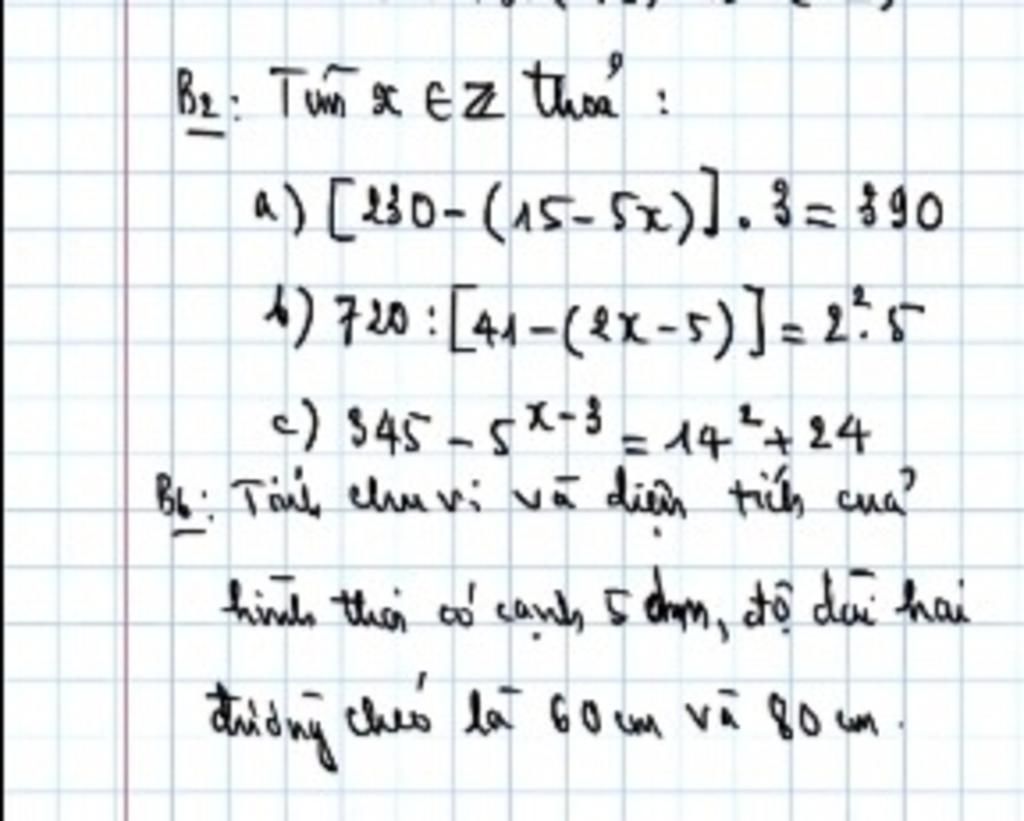 B2: Tìm x ∈ Z thoả :
a) [230 - (15 - 5x)] . 3 = 390
b) 720 : [41 - (2x - 5)] = 2² . 5
c) 345 - 5^(x - 3) = 14² + 24
B6: Tính chu vi và diện tích của
hình thoi có cạnh 5 dm, độ dài hai
đường chéo là 60 cm và 80 cm.